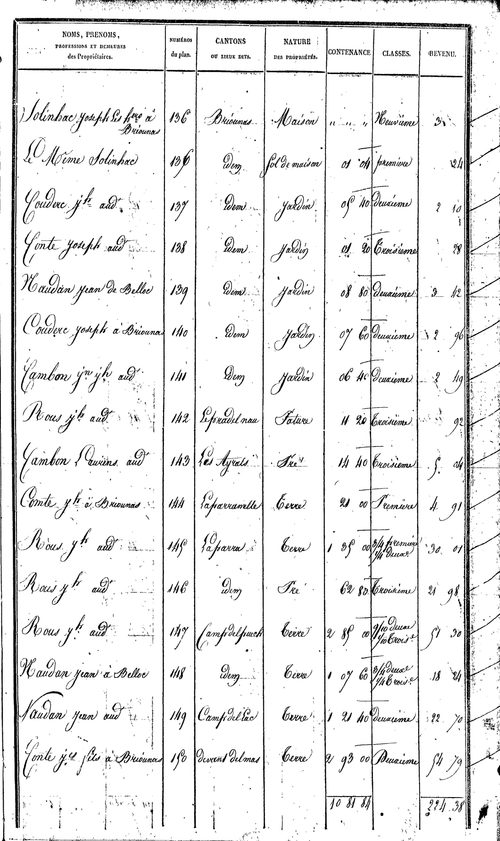 NOMS, PRENOMS, PROFESSIONS ET DEMEURES des Propriétaires. NUMÉROS du plan. CANTONS OU LIEUX DITS. NATURE DES PROPRIÉTÉS. CONTENANCE. CLASSES. REVENU.
Solinhac Joseph les hers à Briounas 136 Briounas Maison " " " Neuvième 3
Le Même Solinhac 136 idem Sol de maison 01 04 première 24
Couderc jh aud 137 idem Jardin 05 40 Deuxième 2 10
Conte Joseph aud 138 idem Jardin 01 20 Troisième 28
Naudan Jean de Belloc 139 idem Jardin 08 80 deuxième 3 42
Couderc Joseph à Briounas 140 idem Jardin 07 60 deuxième 2 96
Cambon jn jh aud 141 idem Jardin 06 40 deuxième 2 49
Rous jh aud 142 Lepradelnau Pature 11 20 Troisième 92
Cambon Laurens aud 143 Les Ayrals Pré 14 40 Troisième 5 04
Comte jh à Briounas 144 Laparramelle Terre 21 00 Première 4 91
Rous jh aud 145 Laparra Terre 1 35 00 3/4 première 1/4 deuxe 30 01
Rous jh aud 146 idem Pré 62 80 Troisième 21 98
Rous jh aud 147 Campdelpuech Terre 2 85 00 9/10 deuxe 1/10 Troise 51 30
Naudan Jean à Belloc 148 idem Terre 1 07 60 3/4 deuxe 1/4 Troise 18 24
Naudan Jean aud 149 Campdellac Terre 1 21 40 deuxième 22 70
Conte fils à Briounas 150 devent delmas Terre 2 93 00 Deuxième 54 79
10 81 84 224 38